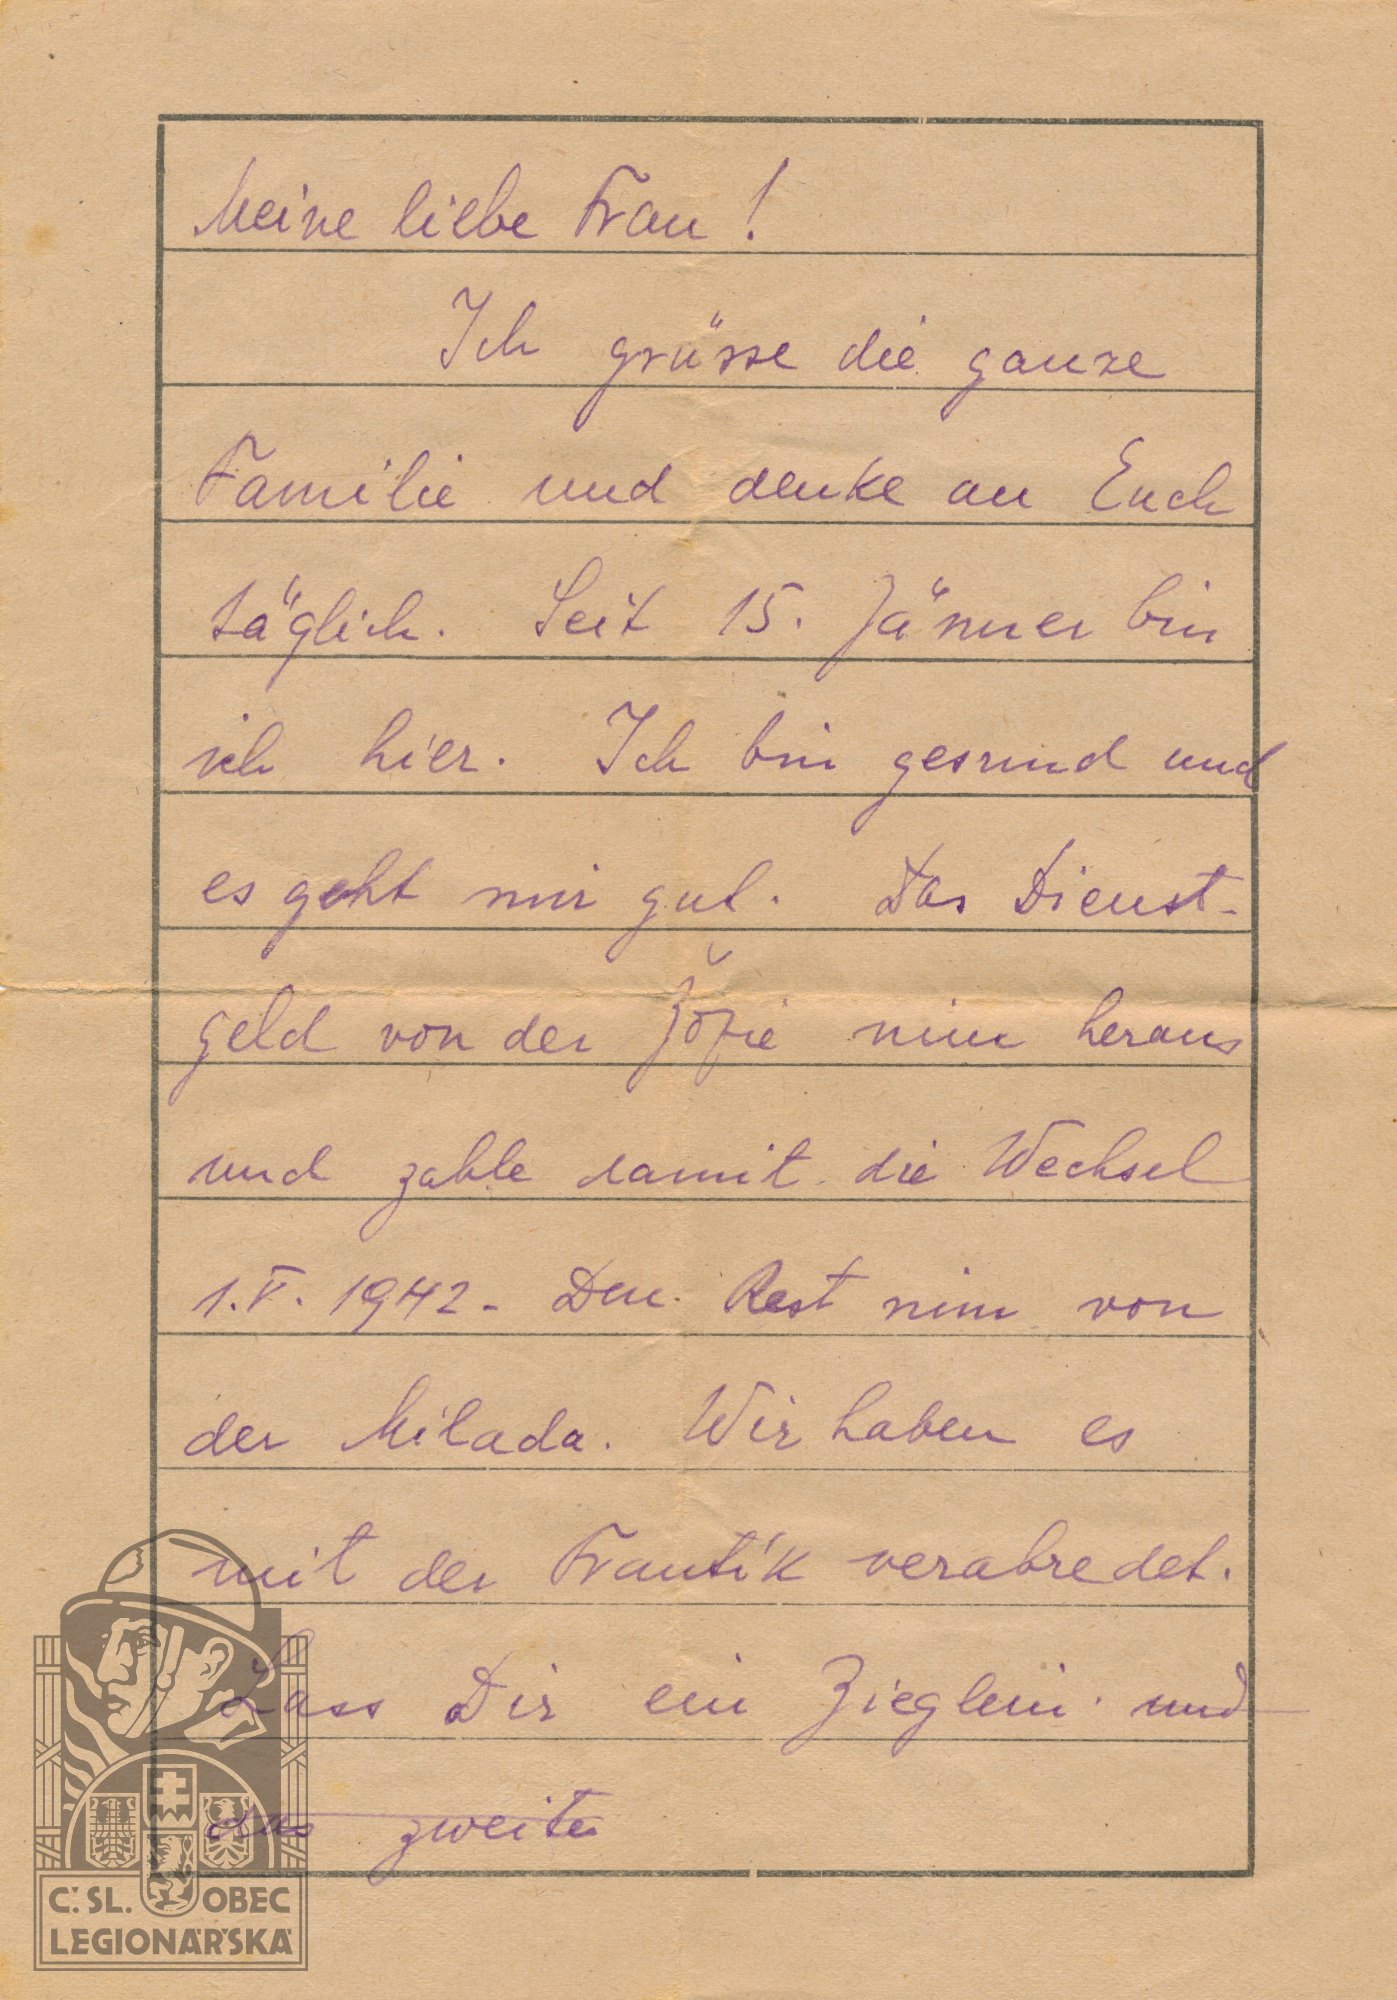 Meine liebe Frau!
Ich grüsse die ganze
Familie und denke an Euch
täglich. Seit 15. Jänner bin
ich hier. Ich bin gesund und
es geht mir gut. Das Dienst-
geld von der Žofie nim heraus
und zahle damit die Wechsel
1.V.1942- Den Rest nim von
der Milada. Wir haben es
mit der Frantík verabredet.
Lass Dir ein Zieglein und
das zweite
Č.SL. OBEC
LEGIONÁŘSKÁ